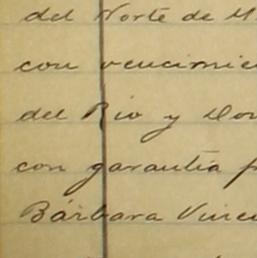 del Norte de M
con vencimie
del Rio y Don
con garantía p
Bárbara Vince